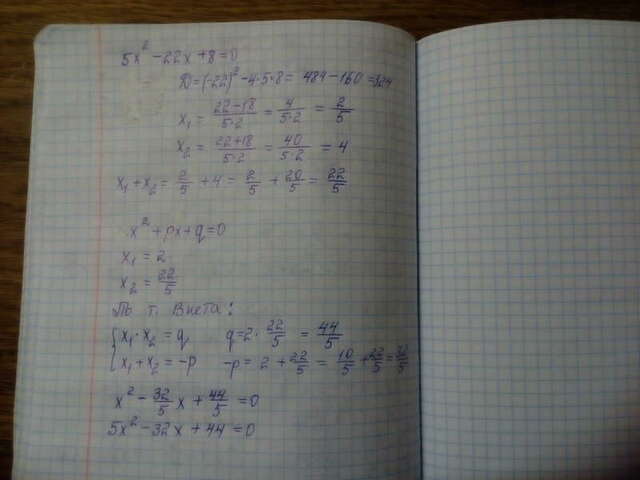 5x² - 22x + 8 = 0
D = (-22)² - 4·5·8 = 484 - 160 = 324
x₁ = (22-18)/(5·2) = 4/(5·2) = 2/5
x₂ = (22+18)/(5·2) = 40/(5·2) = 4
x₁ + x₂ = 2/5 + 4 = 2/5 + 20/5 = 22/5
x² + px + q = 0
x₁ = 2
x₂ = 22/5
По т. Виета:
{ x₁·x₂ = q   q = 2·22/5 = 44/5
{ x₁ + x₂ = -p   -p = 2 + 22/5 = 10/5 + 22/5 = 32/5
x² - 32/5 x + 44/5 = 0
5x² - 32x + 44 = 0